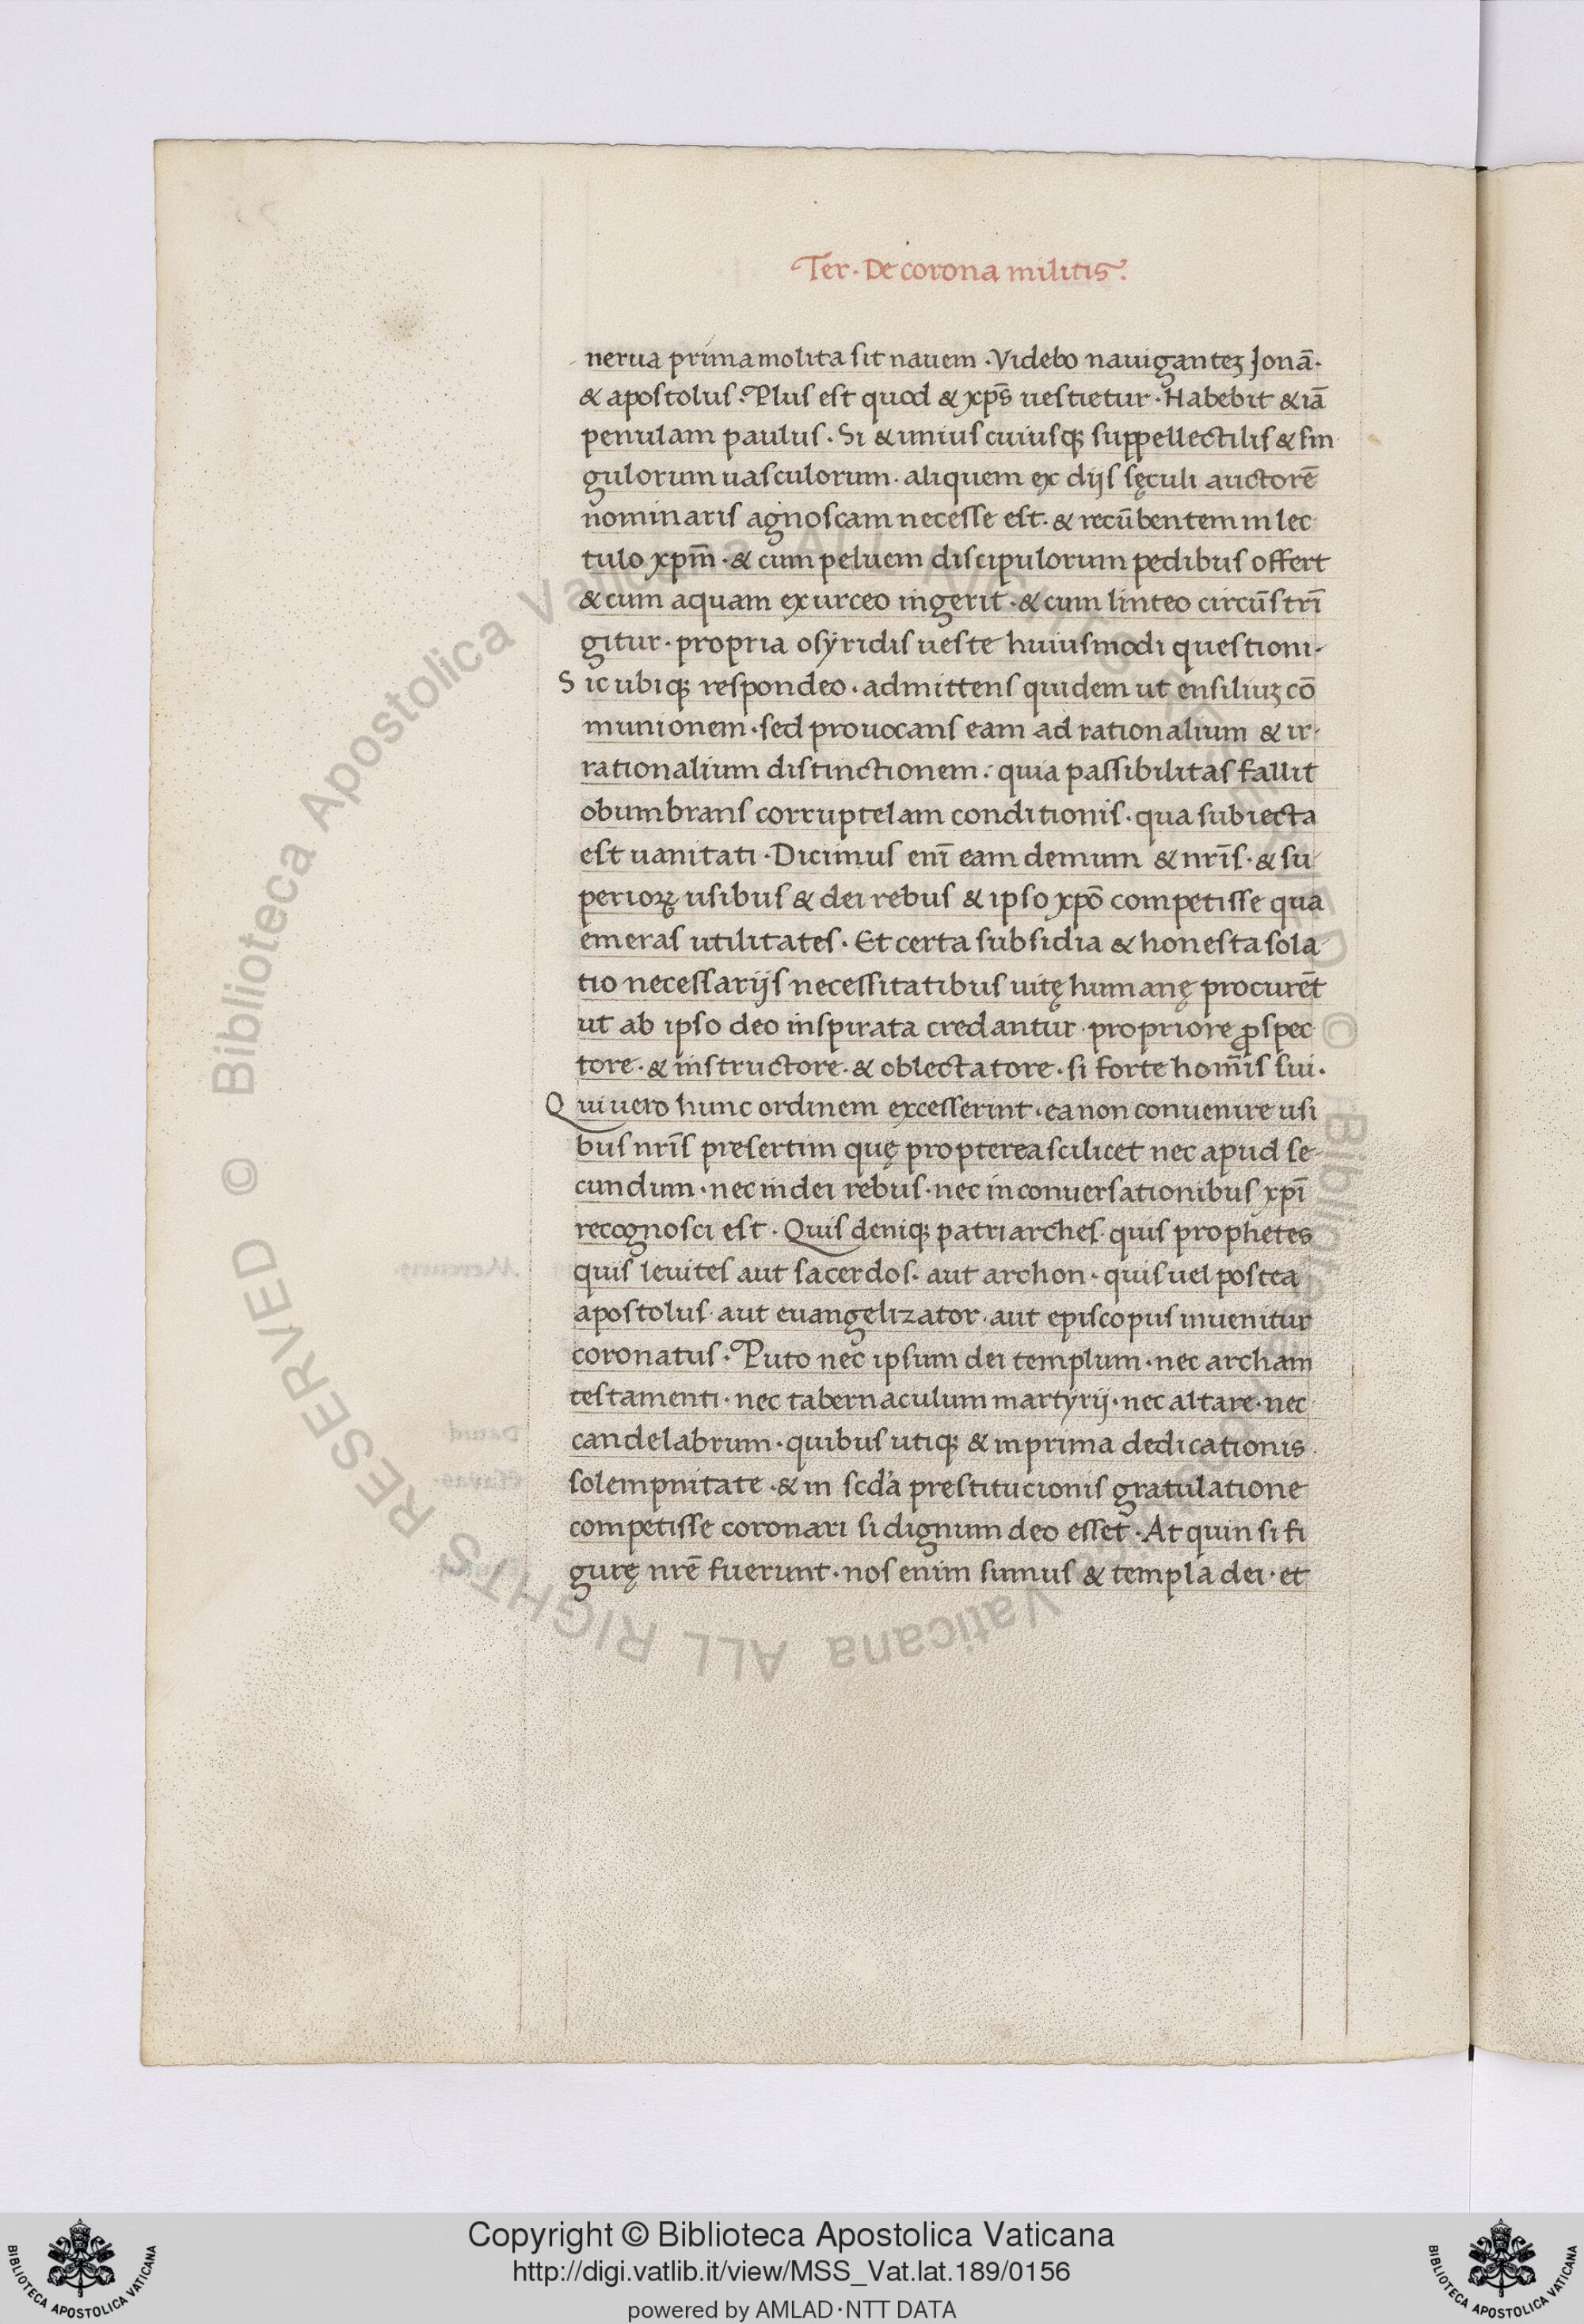 Ter · De corona militis ·
nerua prima molita sit nauem · Videbo nauiganteꝫ Jonā ·
& apostolus · Plus est quod & xp̄s uestietur · Habebit & iā
penulam paulus · Si & unius cuiusqꝫ suppellectilis & sin
gulorum uasculorum · aliquem ex dijs sęculi auctorē
nominaris agnoscam necesse est · & recūbentem in lec
tulo xpm̄ · & cum peluem discipulorum pedibus offert
& cum aquam ex urceo ingerit · & cum linteo circūstrī
gitur · propria osyridis ueste huiusmodi questioni ·
Sic ubiqꝫ respondeo · admittens quidem ut ensiliuꝫ cō
munionem · sed prouocans eam ad rationalium & ir
rationalium distinctionem · quia passibilitas fallit
obumbrans corruptelam conditionis · qua subiecta
est uanitati · Dicimus enī eam demum & nr̄is · & su
perioꝝ usibus & dei rebus & ipso xpō competisse qua
emeras utilitates · Et certa subsidia & honesta sola
tio necessarijs necessitatibus uitę humanę procurēt
ut ab ipso deo inspirata credantur propriore ꝓspec
tore · & instructore · & oblectatore · si forte homīs sui ·
Qui uero hunc ordinem excesserint · ea non conuenire usi
bus nr̄is presertim quę propterea scilicet nec apud se
cundum · nec in dei rebus · nec in conuersationibus xpī
recognosci est · Quis deniqꝫ patriarches · quis prophetes
quis leuites aut sacerdos · aut archon · quis uel postea
apostolus · aut euangelizator · aut episcopus inuenitur
coronatus · Puto nec ipsum dei templum · nec archam
testamenti · nec tabernaculum martyrij · nec altare · nec
candelabrum · quibus utiqꝫ & in prima dedicationis
solempnitate · & in scd̄a prestitucionis gratulatione
competisse coronari si dignum deo esset · At quin si fi
gurę nrē fuerunt · nos enim sumus & templa dei · et
© Biblioteca Apostolica Vaticana ALL RIGHTS RESERVED
Copyright © Biblioteca Apostolica Vaticana
http://digi.vatlib.it/view/MSS_Vat.lat.189/0156
powered by AMLAD·NTT DATA
BIBLIOTECA APOSTOLICA VATICANA
BIBLIOTECA APOSTOLICA VATICANA